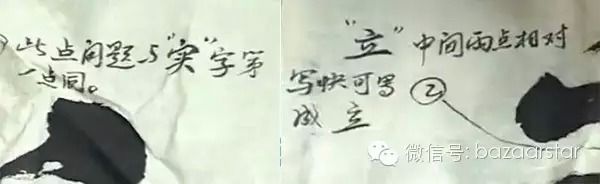 此点问题与“实”字第
一点同。
“立”中间两点相对
写快可写
成立
②
微信号: bazaarstar